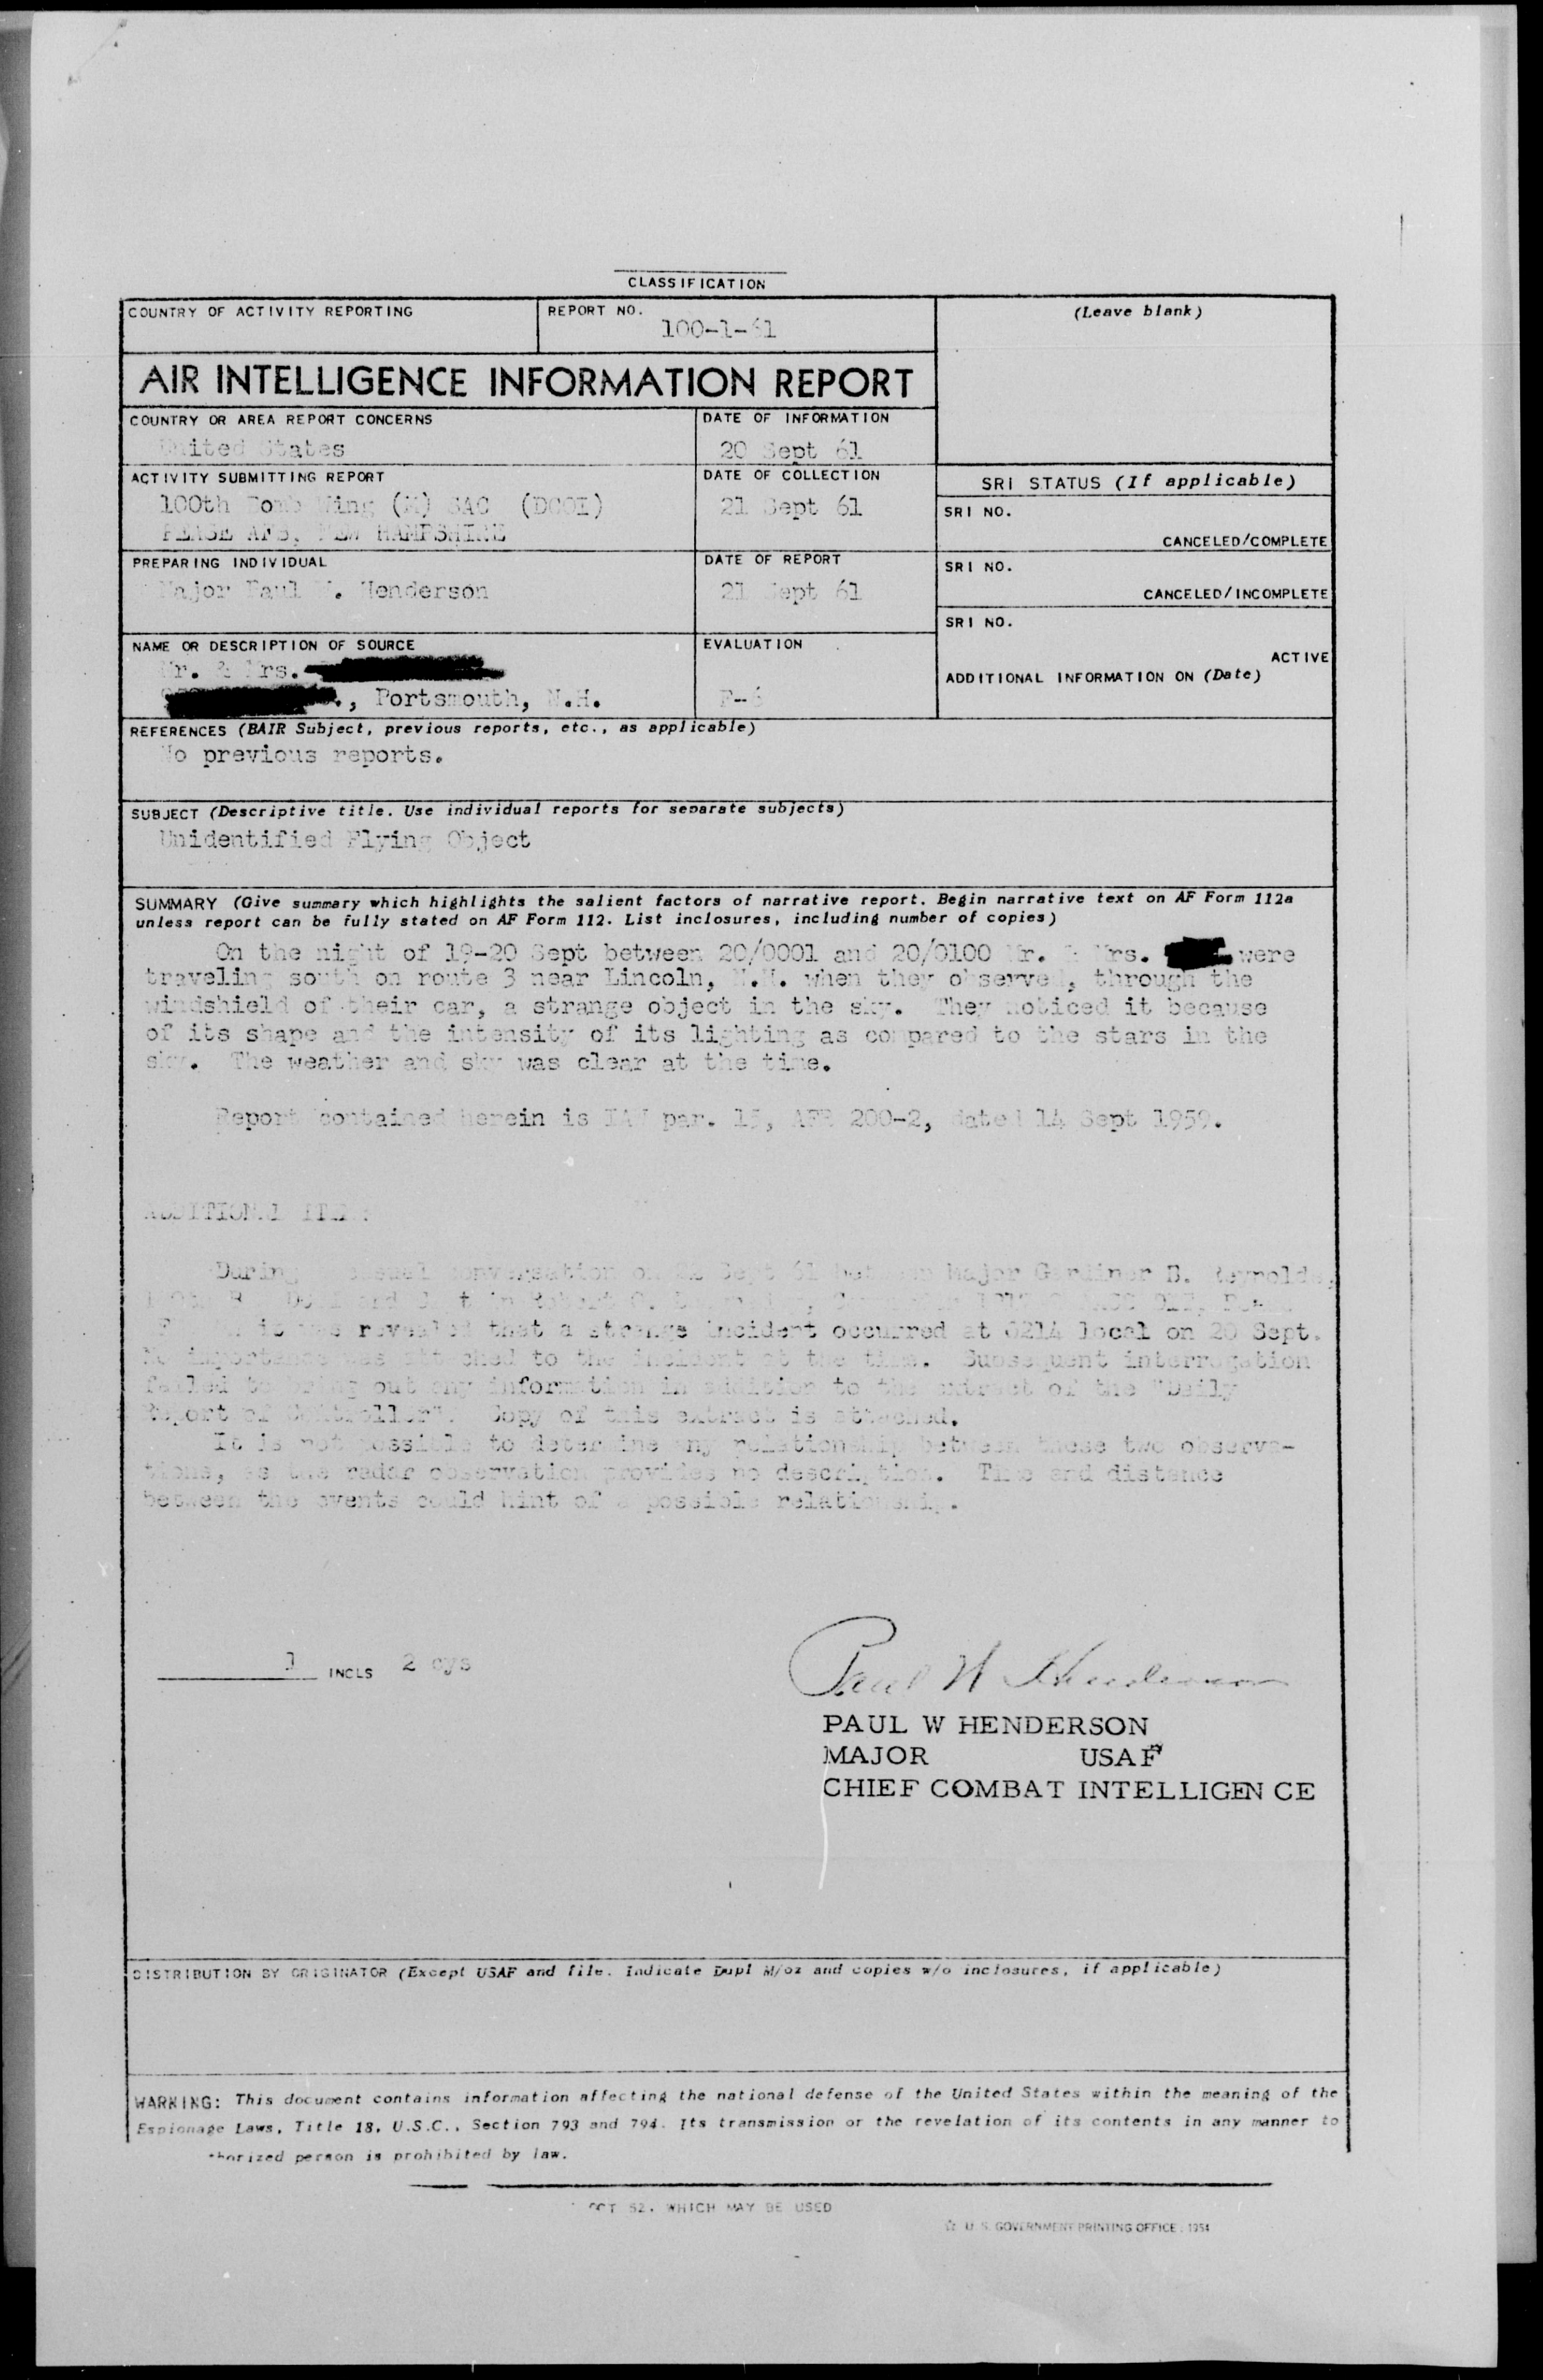 CLASSIFICATION
COUNTRY OF ACTIVITY REPORTING
REPORT NO.
100-1-61
(Leave blank)
AIR INTELLIGENCE INFORMATION REPORT
COUNTRY OR AREA REPORT CONCERNS
United States
DATE OF INFORMATION
20 Sept 61
ACTIVITY SUBMITTING REPORT
100th Bomb Wing (M) SAC (DCOI)
PEASE AFB, NEW HAMPSHIRE
DATE OF COLLECTION
21 Sept 61
SRI STATUS (If applicable)
SRI NO.
CANCELED/COMPLETE
PREPARING INDIVIDUAL
Major Paul W. Henderson
DATE OF REPORT
21 Sept 61
SRI NO.
CANCELED/INCOMPLETE
SRI NO.
ACTIVE
ADDITIONAL INFORMATION ON (Date)
NAME OR DESCRIPTION OF SOURCE
Mr. & Mrs.
, Portsmouth, N.H.
EVALUATION
F-6
REFERENCES (BAIR Subject, previous reports, etc., as applicable)
No previous reports.
SUBJECT (Descriptive title. Use individual reports for separate subjects)
Unidentified Flying Object
SUMMARY (Give summary which highlights the salient factors of narrative report. Begin narrative text on AF Form 112a
unless report can be fully stated on AF Form 112. List inclosures, including number of copies)
On the night of 19-20 Sept between 20/0001 and 20/0100 Mr. & Mrs. were
traveling south on route 3 near Lincoln, N.H. when they observed, through the
windshield of their car, a strange object in the sky. They noticed it because
of its shape and the intensity of its lighting as compared to the stars in the
sky. The weather and sky was clear at the time.
Report contained herein is IAW par. 15, AFR 200-2, dated 14 Sept 1959.
ADDITIONAL ITEM:
During a casual conversation on 22 Sept 61 between Major Gardiner B. Reynolds,
it was revealed that a strange incident occurred at 0214 local on 20 Sept.
No importance was attached to the incident at the time. Subsequent interrogation
failed to bring out any information in addition to the extract of the "Daily
Report of Controller". Copy of this extract is attached.
It is not possible to determine any relationship between these two observa-
tions, as the radar observation provides no description. Time and distance
between the events could hint of a possible relationship.
1 INCLS 2 cys
Paul W Henderson
PAUL W HENDERSON
MAJOR USAF
CHIEF COMBAT INTELLIGENCE
DISTRIBUTION BY ORIGINATOR (Except USAF and file. Indicate Dupl M/oz and copies w/o inclosures, if applicable)
WARKING: This document contains information affecting the national defense of the United States within the meaning of the
Espionage Laws, Title 18, U.S.C., Section 793 and 794. Its transmission or the revelation of its contents in any manner to
horized person is prohibited by law.
OCT 52. WHICH MAY BE USED
☆ U. S. GOVERNMENT PRINTING OFFICE : 1954